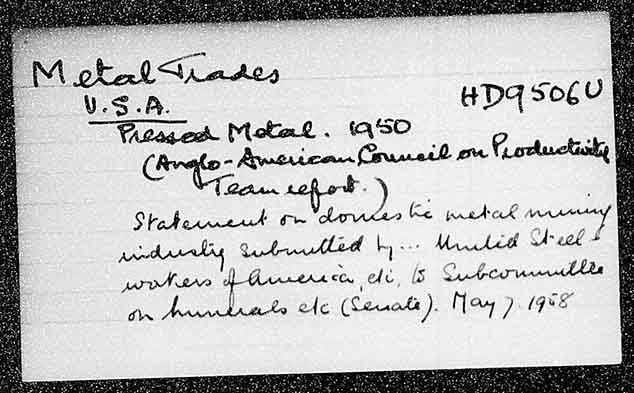 Metal Trades
U.S.A.
HD9506U
Pressed Metal. 1950
(Anglo-American Council on Productivity
Team report.)
Statement on domestic metal mining
industry submitted by ... United Steel-
workers of America, etc, to Subcommittee
on Minerals etc (Senate). May 7. 1958